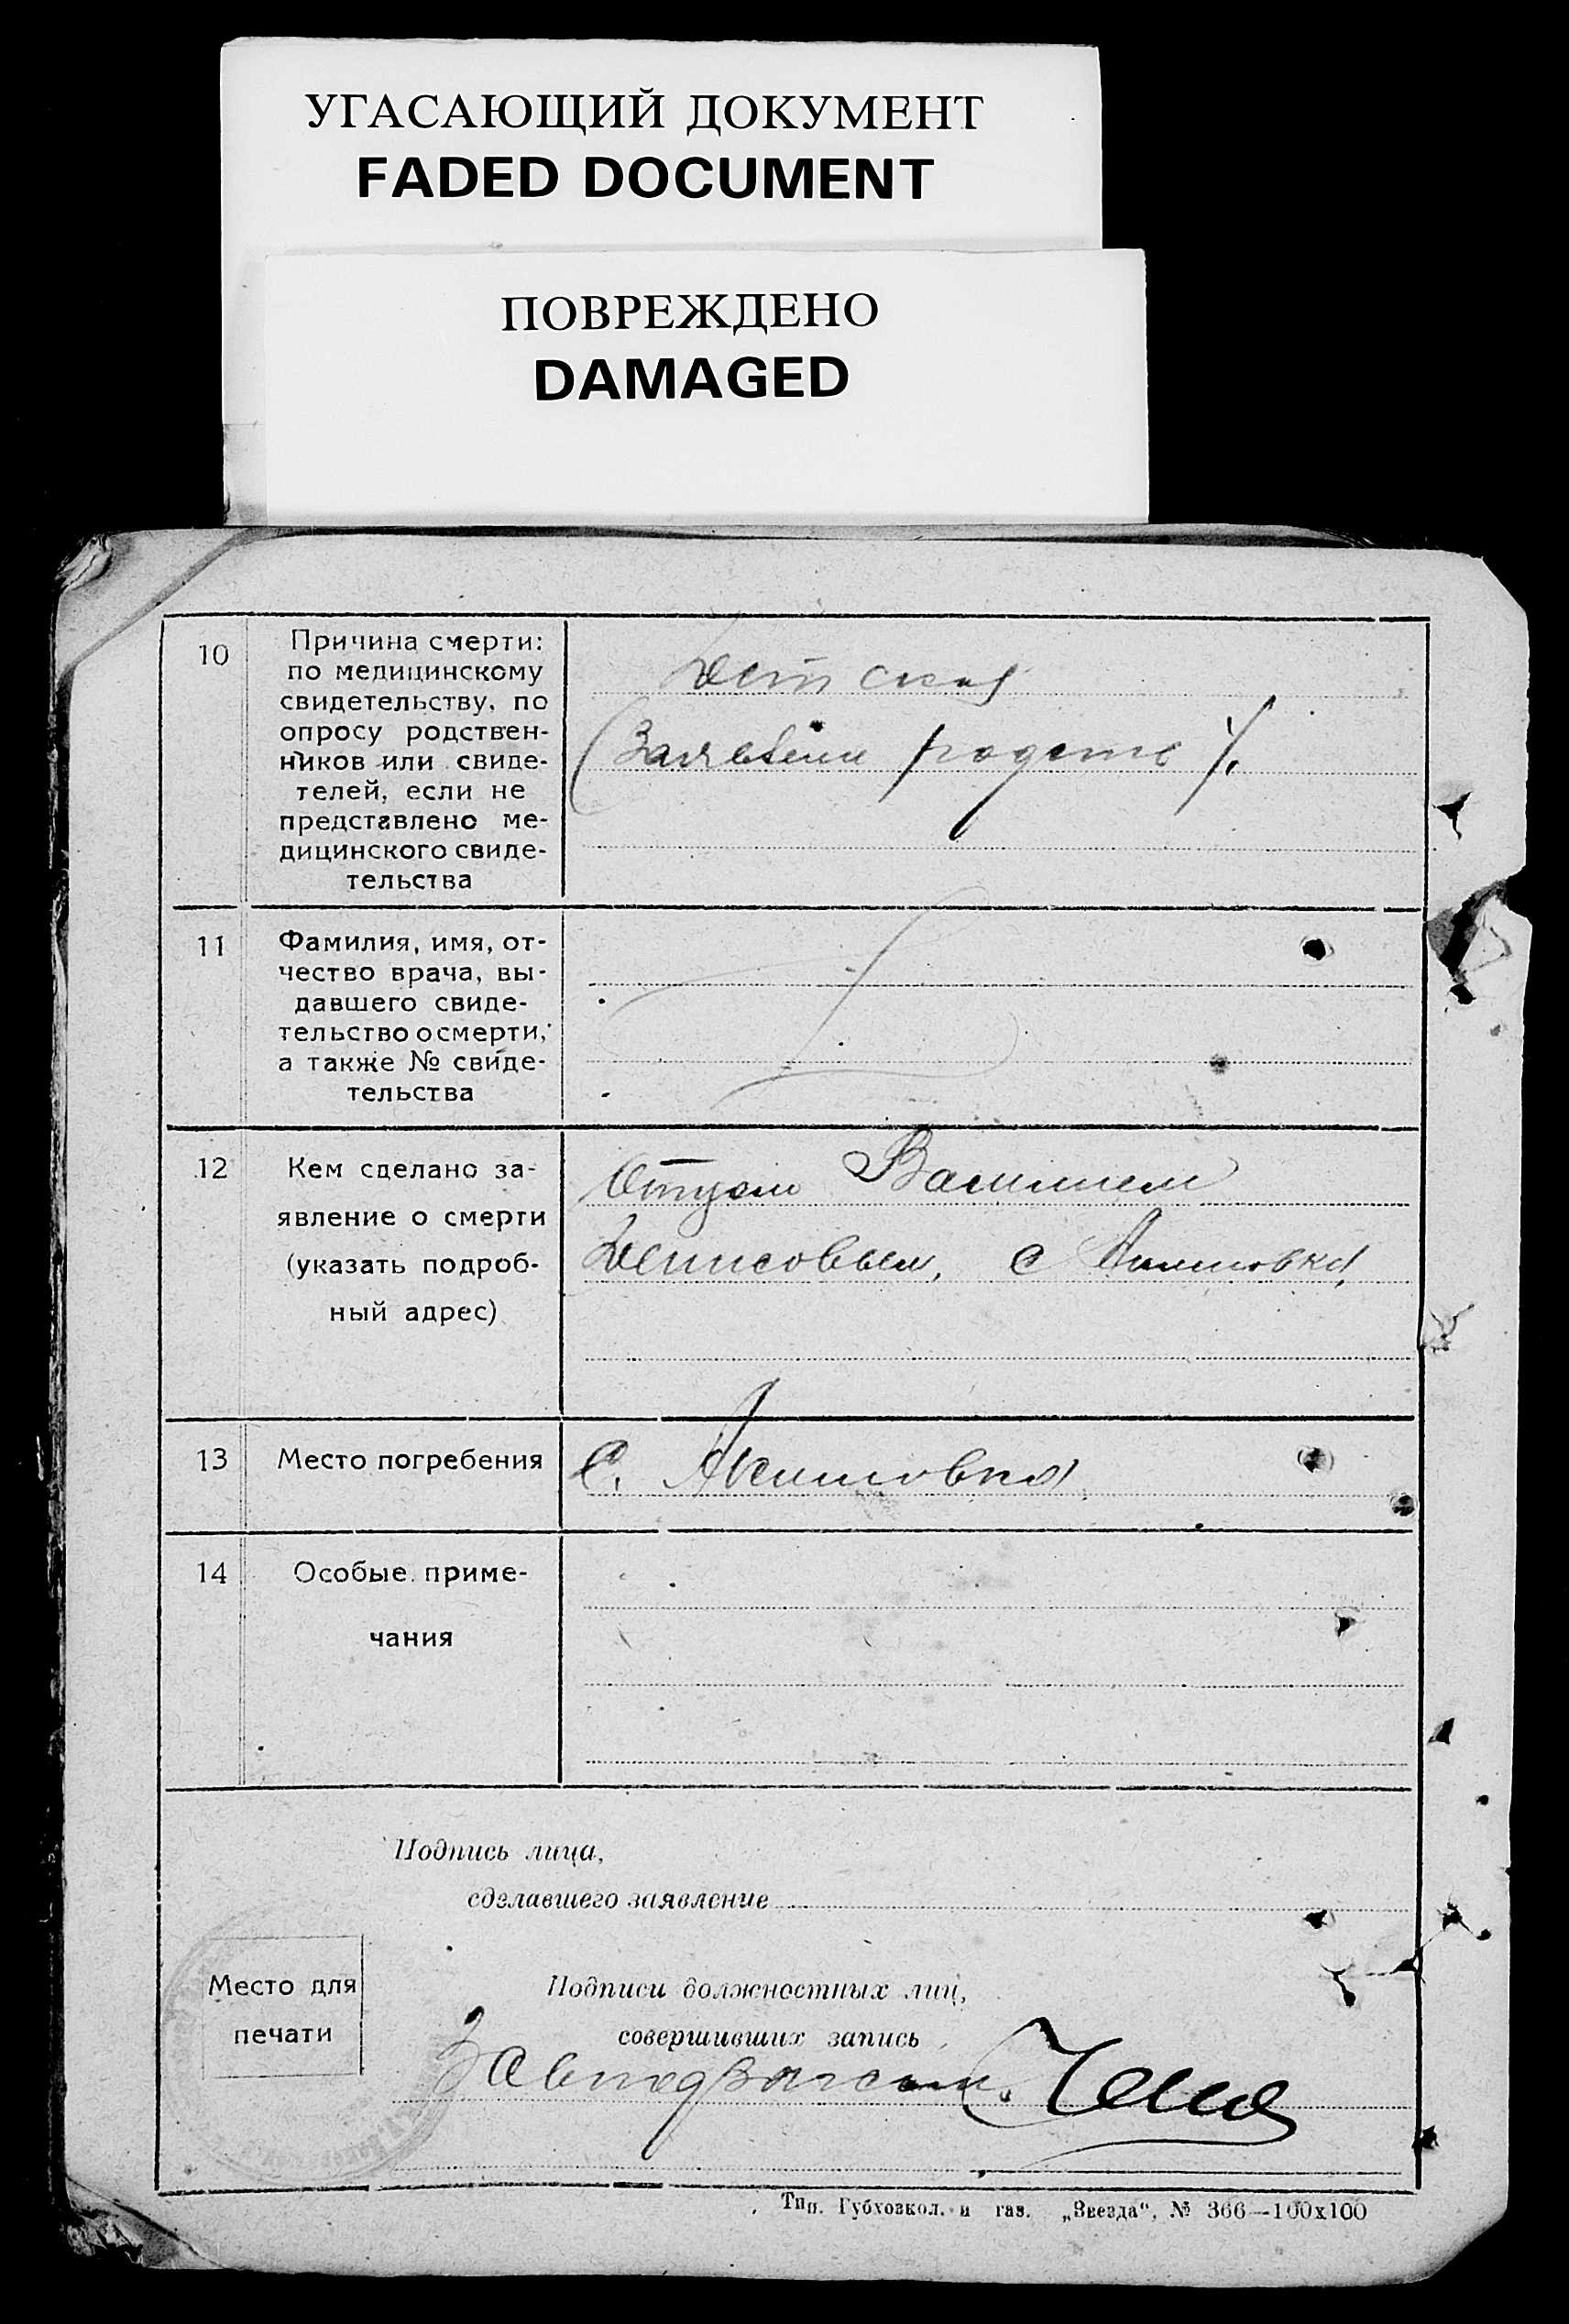 УГАСАЮЩИЙ ДОКУМЕНТ
FADED DOCUMENT
ПОВРЕЖДЕНО
DAMAGED
10
Причина смерти:
по медицинскому
свидетельству, по
опросу родствен-
ников или свиде-
телей, если не
представлено ме-
дицинского свиде-
тельства
Детская
(Заявлени родств).
11
Фамилия, имя, от-
чество врача, вы-
давшего свиде-
тельство о смерти,
а также № свиде-
тельства
12
Кем сделано за-
явление о смерти
(указать подроб-
ный адрес)
Отцом Василием
Денисовым, с
13
Место погребения
С. Акимовка
14
Особые приме-
чания
Подпись лица,
сделавшего заявление
Место для
печати
Подписи должностных лиц,
совершивших запись
Завподзагсом
Тип. Губхозкол. и газ. „Звезда“, № 366—100х100